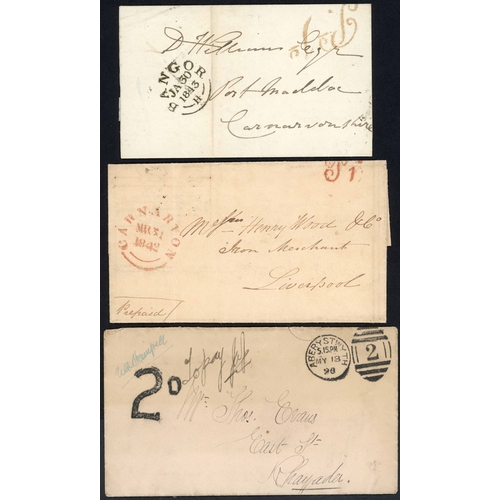 D Williams Esqr
Port Madoc
Carnarvonshire
BANGOR
JA 30
1843
H
P 1
CARNARVON
MR 31
1842
Messrs Henry Wood & Co
Iron Merchant
Liverpool
Prepaid
2D
To pay
ABERYSTWYTH
5.15PM
MY 13
90
2
Mr Thos. Evans
East St
Rhayader